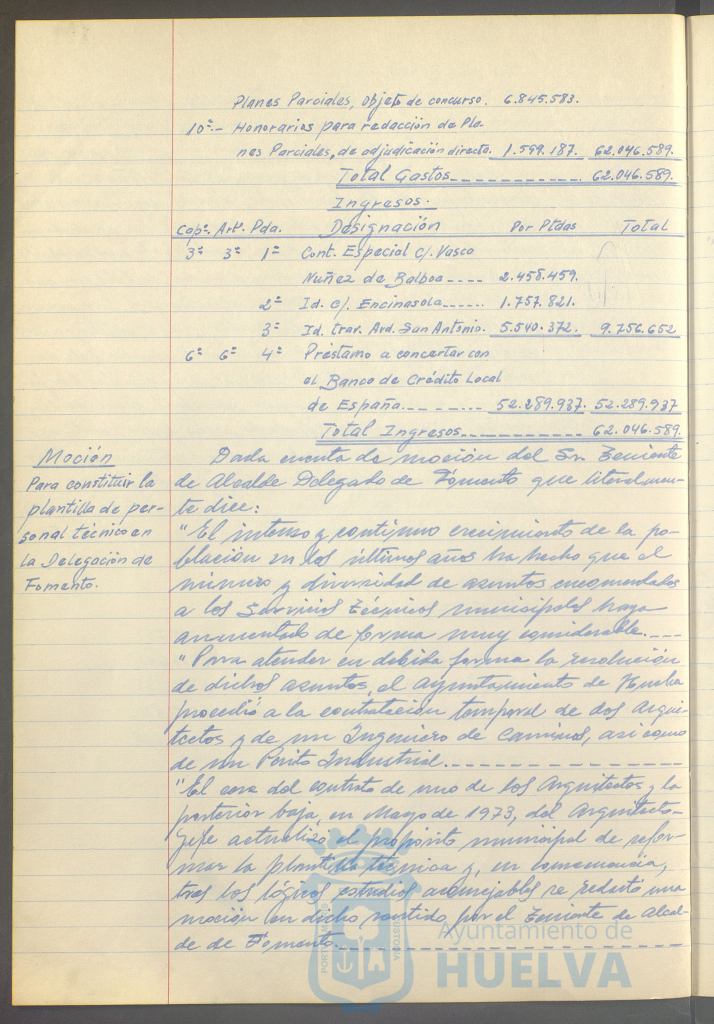 Planes Parciales, objeto de concurso. 6.845.583.
10ª.- Honorarios para redacción de Pla-
nes Parciales, de adjudicación directa. 1.599.187. 62.046.589.
Total Gastos 62.046.589.
Ingresos.
Capº. Artº. Pda. Designación Por Ptdas Total
3º 3º 1ª Cont. Especial c/. Vasco
Nuñez de Balboa 2.458.459.
2ª Id. c/. Encinasola 1.757.821.
3ª Id. trav. Avd. San Antonio. 5.540.372. 9.756.652
6º 6º 4ª Préstamo a concertar con
el Banco de Crédito Local
de España 52.289.937. 52.289.937
Total Ingresos 62.046.589.
Moción
Para constituir la
plantilla de per-
sonal técnico en
la Delegación de
Fomento.
Dada cuenta de moción del Sr. Teniente
de Alcalde Delegado de Fomento que literalmen-
te dice:
"El intenso y continuo crecimiento de la po-
blación en los últimos años ha hecho que el
número y diversidad de asuntos encomendados
a los Servicios Técnicos municipales haya
aumentado de forma muy considerable.
"Para atender en debida forma la resolución
de dichos asuntos, el Ayuntamiento de Huelva
procedió a la contratación temporal de dos Arqui-
tectos y de un Ingeniero de Caminos, así como
de un Perito Industrial.
"El cese del contrato de uno de los Arquitectos y la
posterior baja, en Mayo de 1973, del Arquitecto-
Jefe actualizó el propósito municipal de refor-
mar la plantilla técnica y, en consecuencia,
tras los lógicos estudios aconsejables se redactó una
moción en dicho sentido por el Teniente de Alcal-
de de Fomento.
Ayuntamiento de
HUELVA